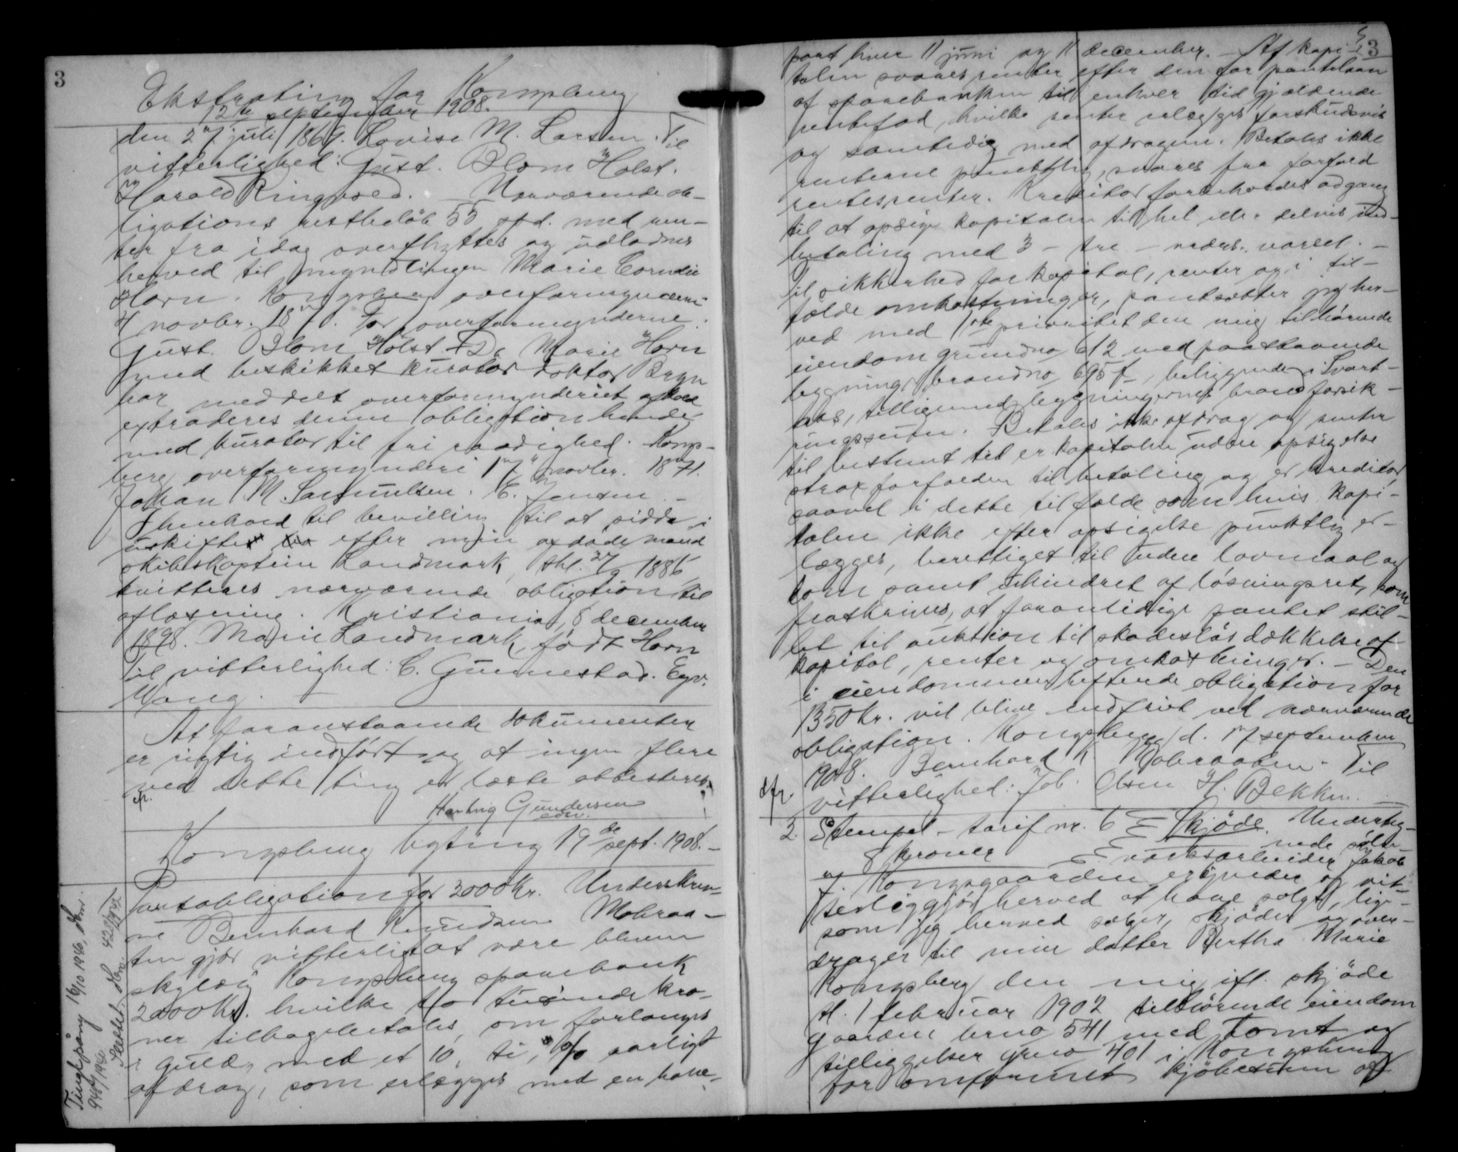 3
Ekstrating for Kongsberg
12te september 1908.
den 27 juli 1869. Lovise M. Larsen. Til
vitterlighed: Gust. Blom Holst.
Harald Ringvoed. Nærværende ob-
ligations restbeløb 55 spd. med ren-
ter fra idag overflyttes og udlodnes
herved til myndlingen Marie Cornelie
Horn. Kongsberg overformynderi
4 novbr. 18. For overformynderne:
Gust. Blom Holst. Da Marie Horn
med beskikket kurator doktor Bryn
har meddelt overformynderiet afkald
extraderes denne obligation hende
med kurator til fri raadighed. Kongs-
berg overformynderi 17 novbr. 1871.
Johan M. Samuelsen. C. Jensen. -
I henhold til bevilling til at sidde i
uskiftet bo efter min afdøde mand
skibskaptein Landmark, dat. 27 1886,
kvitteres nærværende obligation til
aflæsning. Kristiania, 8 december
1898. Marie Landmark, født Horn
Til vitterlighed: C. Gunnestad. Egv.
Wang.
At foranstaaende dokumenter
er rigtig indført og at ingen flere
ved dette ting er læste attesteres.
Hartvig Gundersen
edsv.
Kongsberg byting 19de sept. 1908. -
Pantobligation for 2000 kr. Underskrev-
ne Bernhard Knudsen Mobraa-
ten gjør vitterligt at være bleven
skyldig Kongsberg sparebank
2000 kr. hvilke to tusinde kro-
ner tilbagebetales, om forlanges
i guld, med et 10, ti, % aarligt
afdrag, som erlægges med en halv-
Tinglysning 16/10 1916,
Slettet
3
part hver 11 juni og 11 december. - Af kapi-
talen svares renter efter den for pantelaan
af sparebanken til enhver tid gjældende
rentefod, hvilke renter erlægges forskudsvis
og samtidig med afdragene. Betales ikke
renterne punktlig, svares fra forfald
rentesrenter. Kreditor forbeholdes adgang
til at opsige kapitalen til hel eller delvis ind-
betaling med 3 - tre - maaneders varsel. -
Til sikkerhed for kapital, renter og i til-
fælde omkostninger, pantsætter jeg her-
ved med 1ste prioritet den mig tilhørende
eiendom grundno 612 med paastaaende
bygning, brandno 695, beliggende i Svart-
aas, tilligemed bygningernes brandforsik-
ringssum. Betales ikke afdrag og renter
til bestemt tid er kapitalen uden opsigelse
strax forfalden til betaling og er kreditor
saavel i dette tilfælde som hvis kapi-
talen ikke efter opsigelse punktlig er-
lægges, berettiget til uden lovmaal og
dom samt uhindret af løsningsret, som
fraskrives, at foranledige pantet stil-
let til auktion til skadesløs dækkelse af
kapital, renter og omkostninger. - Den
i eiendommen heftende obligation for
1350 kr. vil blive indfriet ved nærværende
obligation. Kongsberg d. 17 september
1908. Bernhard K Mobraaten. Til
vitterlighed: Joh. Olsen. H. Bekken. -
2. Stempel-tarif nr. 6 Skjøde. Underteg-
8 kroner nede sølv-
verksarbeider Jakob
Kongsgaarden erkjender og vit-
terliggjør herved at have solgt, lige-
som jeg herved sælger, skjøder og over-
drager til min datter Bertha Marie
Kongsberg den mig ifl. skjøde
dt. 1 februar 1902 tilhørende eiendom
gaarden brno 541 med tomt og
tilliggelser grno 401 i Kongsberg
for omforenet kjøbesum af